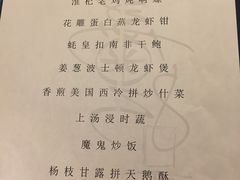 淮杞老鸡炖响螺
花雕蛋白蒸龙虾钳
蚝皇扣南非干鲍
姜葱波士顿龙虾煲
香煎美国西冷拼炒什菜
上汤浸时蔬
魔鬼炒饭
杨枝甘露拼天鹅酥